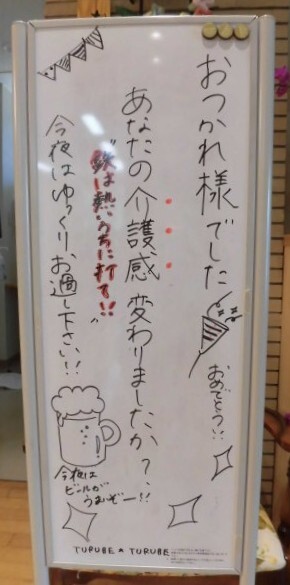 おつかれ様でした
おめでとう!!
あなたの介護感変わりましたか?!!
"鉄は熱いうちに打て!!"
今夜はゆっくり、お過し下さい!!
今夜は
ビールが
うむぞー!!
TURUBE ☆ TURUBE